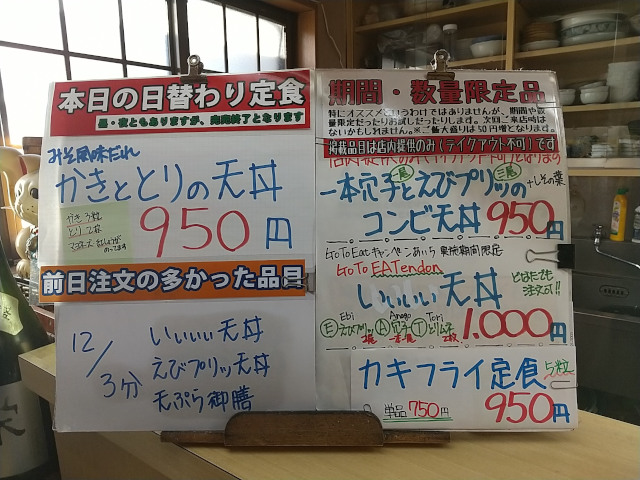 本日の日替わり定食
昼・夜ともありますが、完売終了となります
みそ風味だれ
かきととりの天丼
かき3粒
とり2枚
のってます
950円
前日注文の多かった品目
12/3分
いいいい天丼
えびプリッ天丼
天ぷら御膳
期間・数量限定品
特にオススメというわけではありませんが、期間や数
量限定だったりお試しだったりします。次回ご来店時は
ないかもしれません。※ご飯大盛りは50円増となります。
掲載品目は店内提供のみ(テイクアウト不可)です
一本穴子とえびプリッの
一尾
三尾
+しその葉
コンビ天丼 950円
GoTo Eatキャンペーンあいち 実施期間限定
GoTo EATendon
いいいい天丼
どなたでも
注文可!!
Ebi Anago Tori
Ⓔえびプリッ Ⓐ穴子 Ⓣとりムネ
1.000円
カキフライ定食 5粒
単品750円
950円